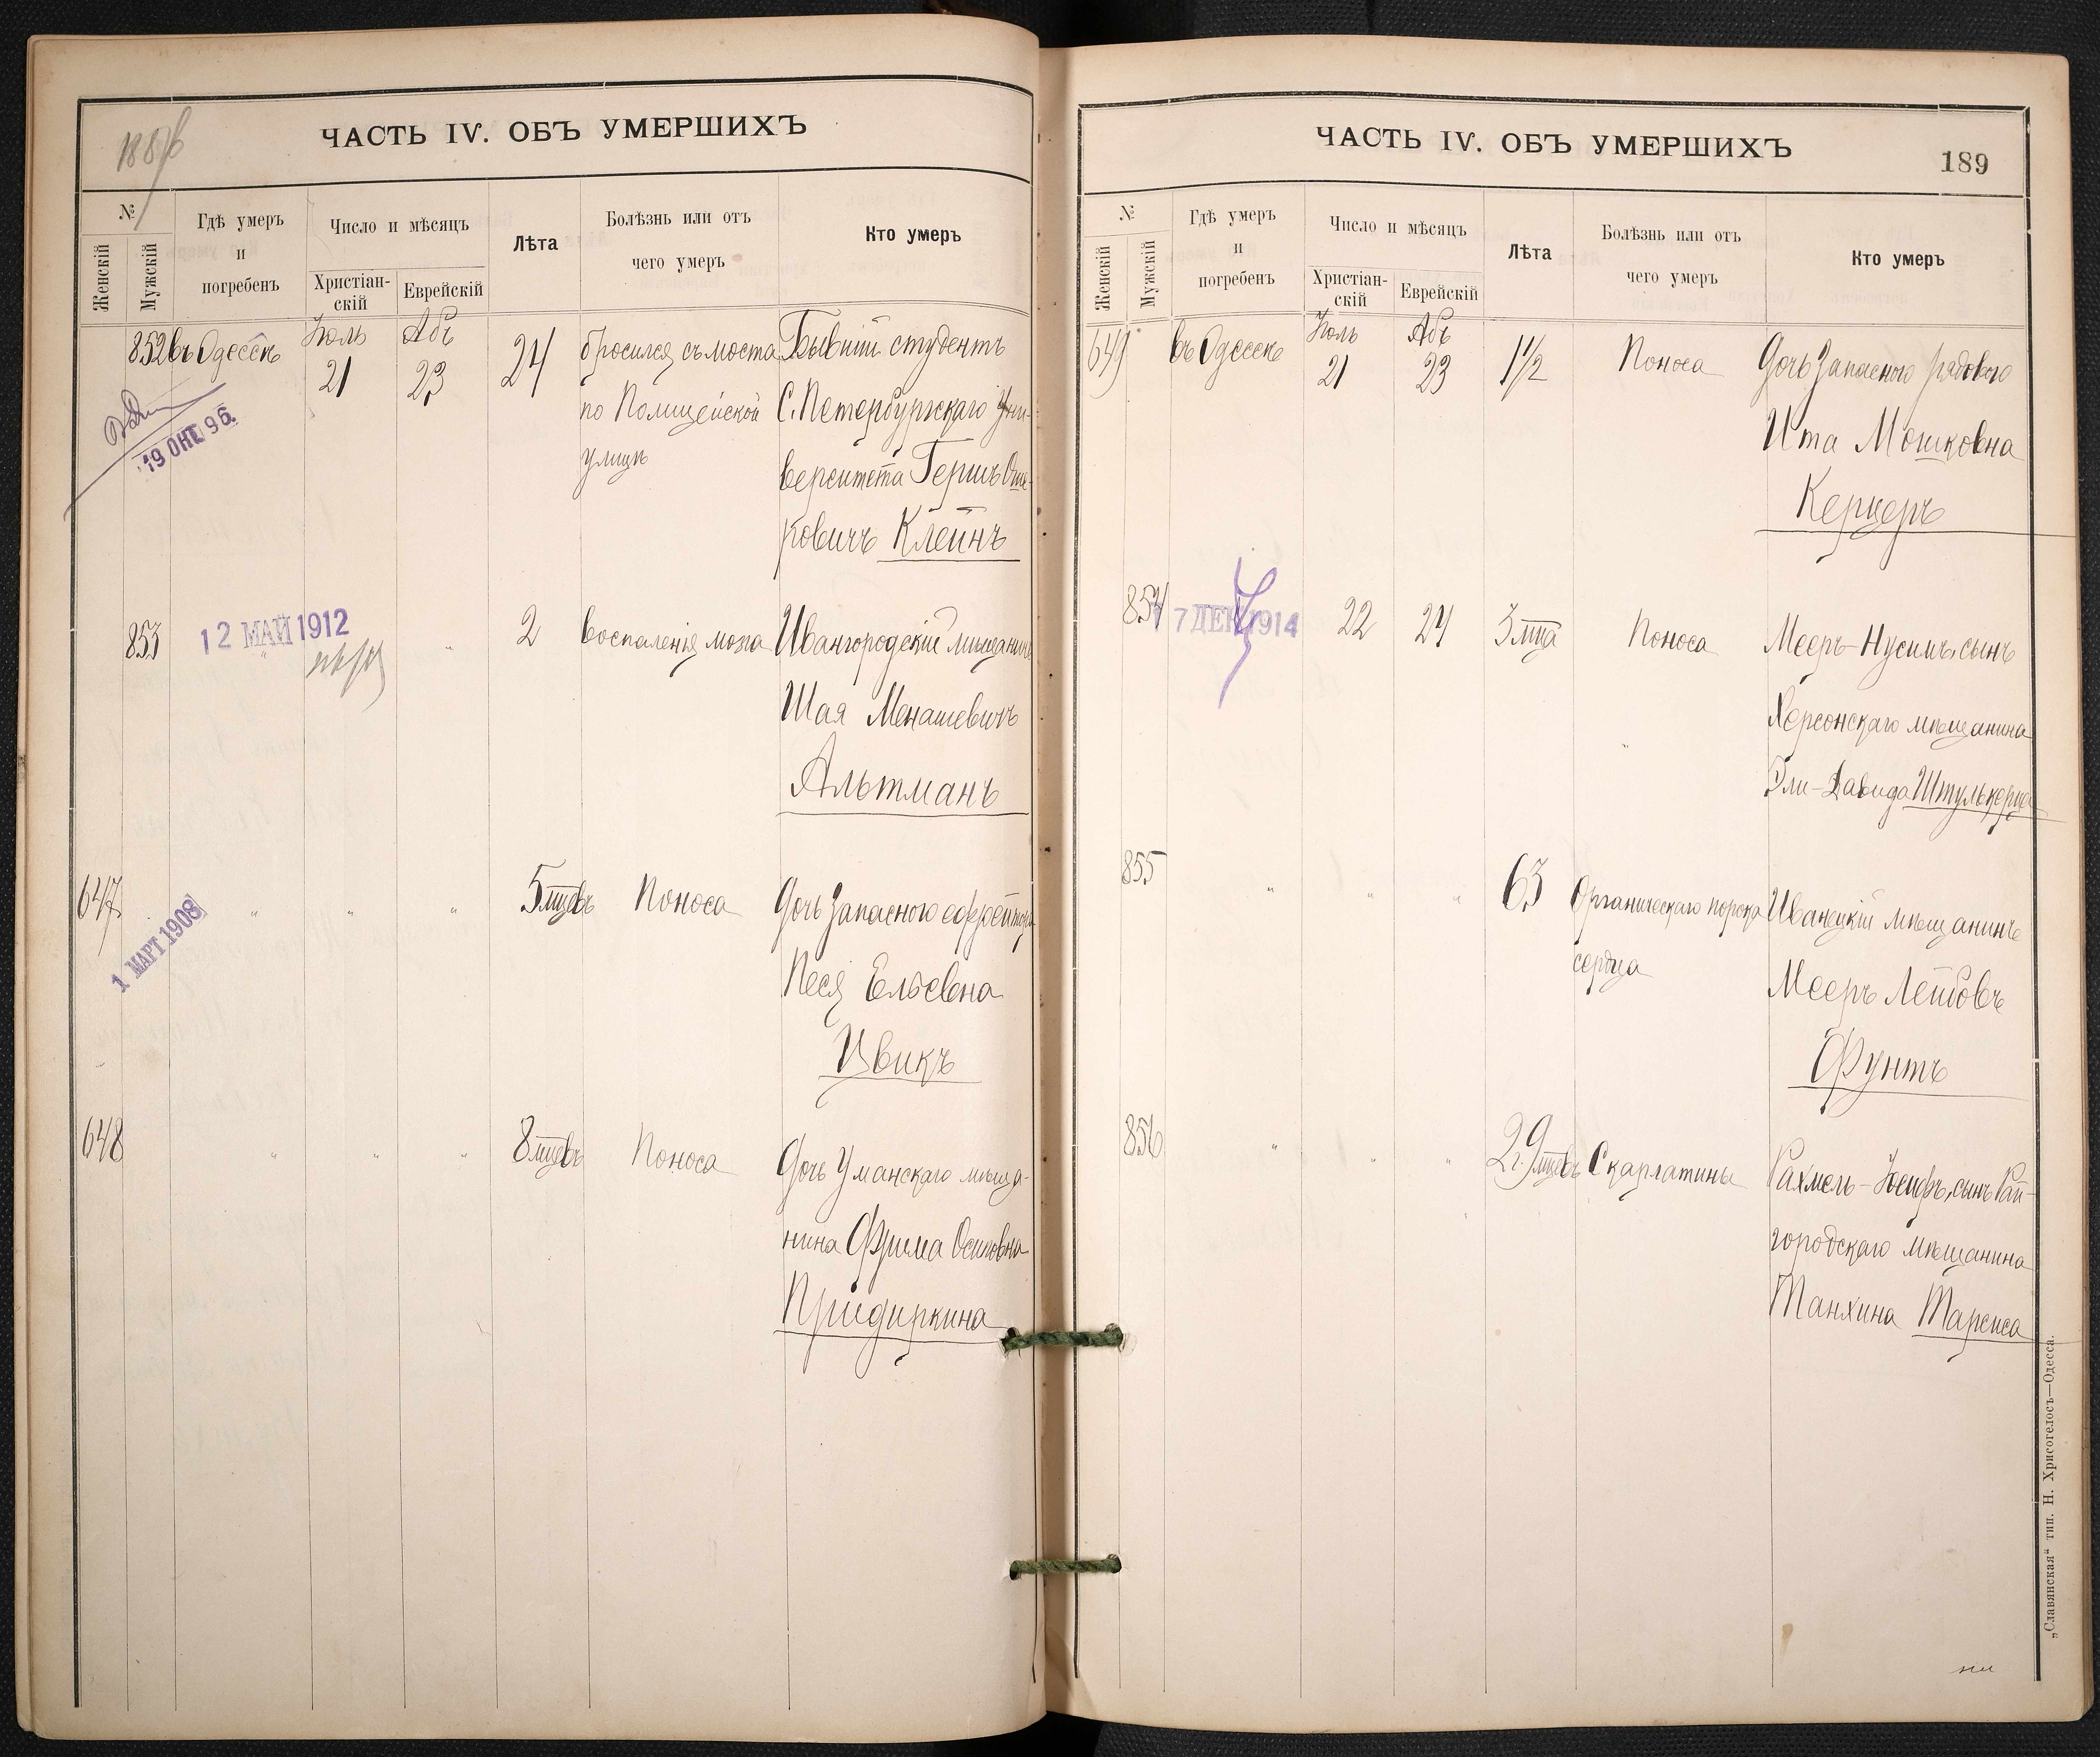 188 об
ЧАСТЬ IV. ОБЪ УМЕРШИХЪ
№
Женскій
Мужскій
Гдѣ умеръ
и
погребенъ
Число и мѣсяцъ
Христіан-
скій
Еврейскій
Лѣта
Болѣзнь или отъ
чего умеръ
Кто умеръ
852
въ Одессѣ
Іюль
21
Абъ
23
24
бросился съ моста
по Полицейской
улицѣ
Бывшій студентъ
С.Петербургскаго Уни-
верситета Гершъ Ош-
ровичъ Клейнъ
19 ОКТ 96.
853
12 МАЙ 1912
"
2
воспаленія мозга
Ивангородскій мѣщанинъ
Шая Менашевичъ
Альтманъ
647
1 МАРТ 1908
"
"
"
5 мцевъ
Поноса
Дочь Запасного ефрейтора
Песя Ельевна
Цвикъ
648
"
"
"
8 мцевъ
Поноса
Дочь Уманскаго мѣща-
нина Фрима Осиповна
Придиркина
ЧАСТЬ IV. ОБЪ УМЕРШИХЪ
189
№
Женскій
Мужскій
Гдѣ умеръ
и
погребенъ
Число и мѣсяцъ
Христіан-
скій
Еврейскій
Лѣта
Болѣзнь или отъ
чего умеръ
Кто умеръ
649
въ Одессѣ
Іюль
21
Абъ
23
1 1/2
Поноса
Дочь Запасного рядового
Ита Мошковна
Керцеръ
854
17 ДЕК 1914
22
24
3 мца
Поноса
Мееръ-Нусимъ, сынъ
Херсонскаго мѣщанина
Эли-Давида Штулькерца
855
"
"
"
63
Органическаго порока
сердца
Иванецкій мѣщанинъ
Мееръ Лейбовъ
Фунтъ
856
"
"
"
2 г. 9 мцевъ
Скарлатины
Рахмель-Іосифъ, сынъ Рай-
городскаго мѣщанина
Танхина Тарсиса
„Славянская“ тип. Н. Хрисогелосъ—Одесса.